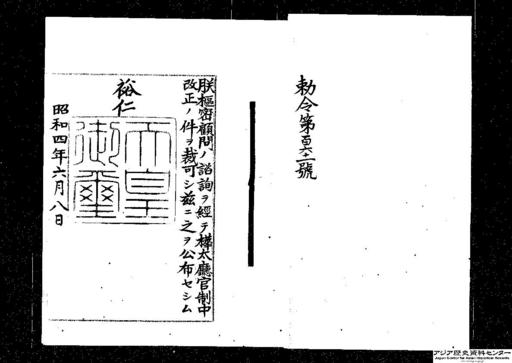 勅令第百六十一號
朕樞密顧問ノ諮詢ヲ經テ樺太廳官制中
改正ノ件ヲ裁可シ玆ニ之ヲ公布セシム
裕仁
天皇
御璽
昭和四年六月八日
アジア歴史資料センター
Japan Center for Asian Historical Records